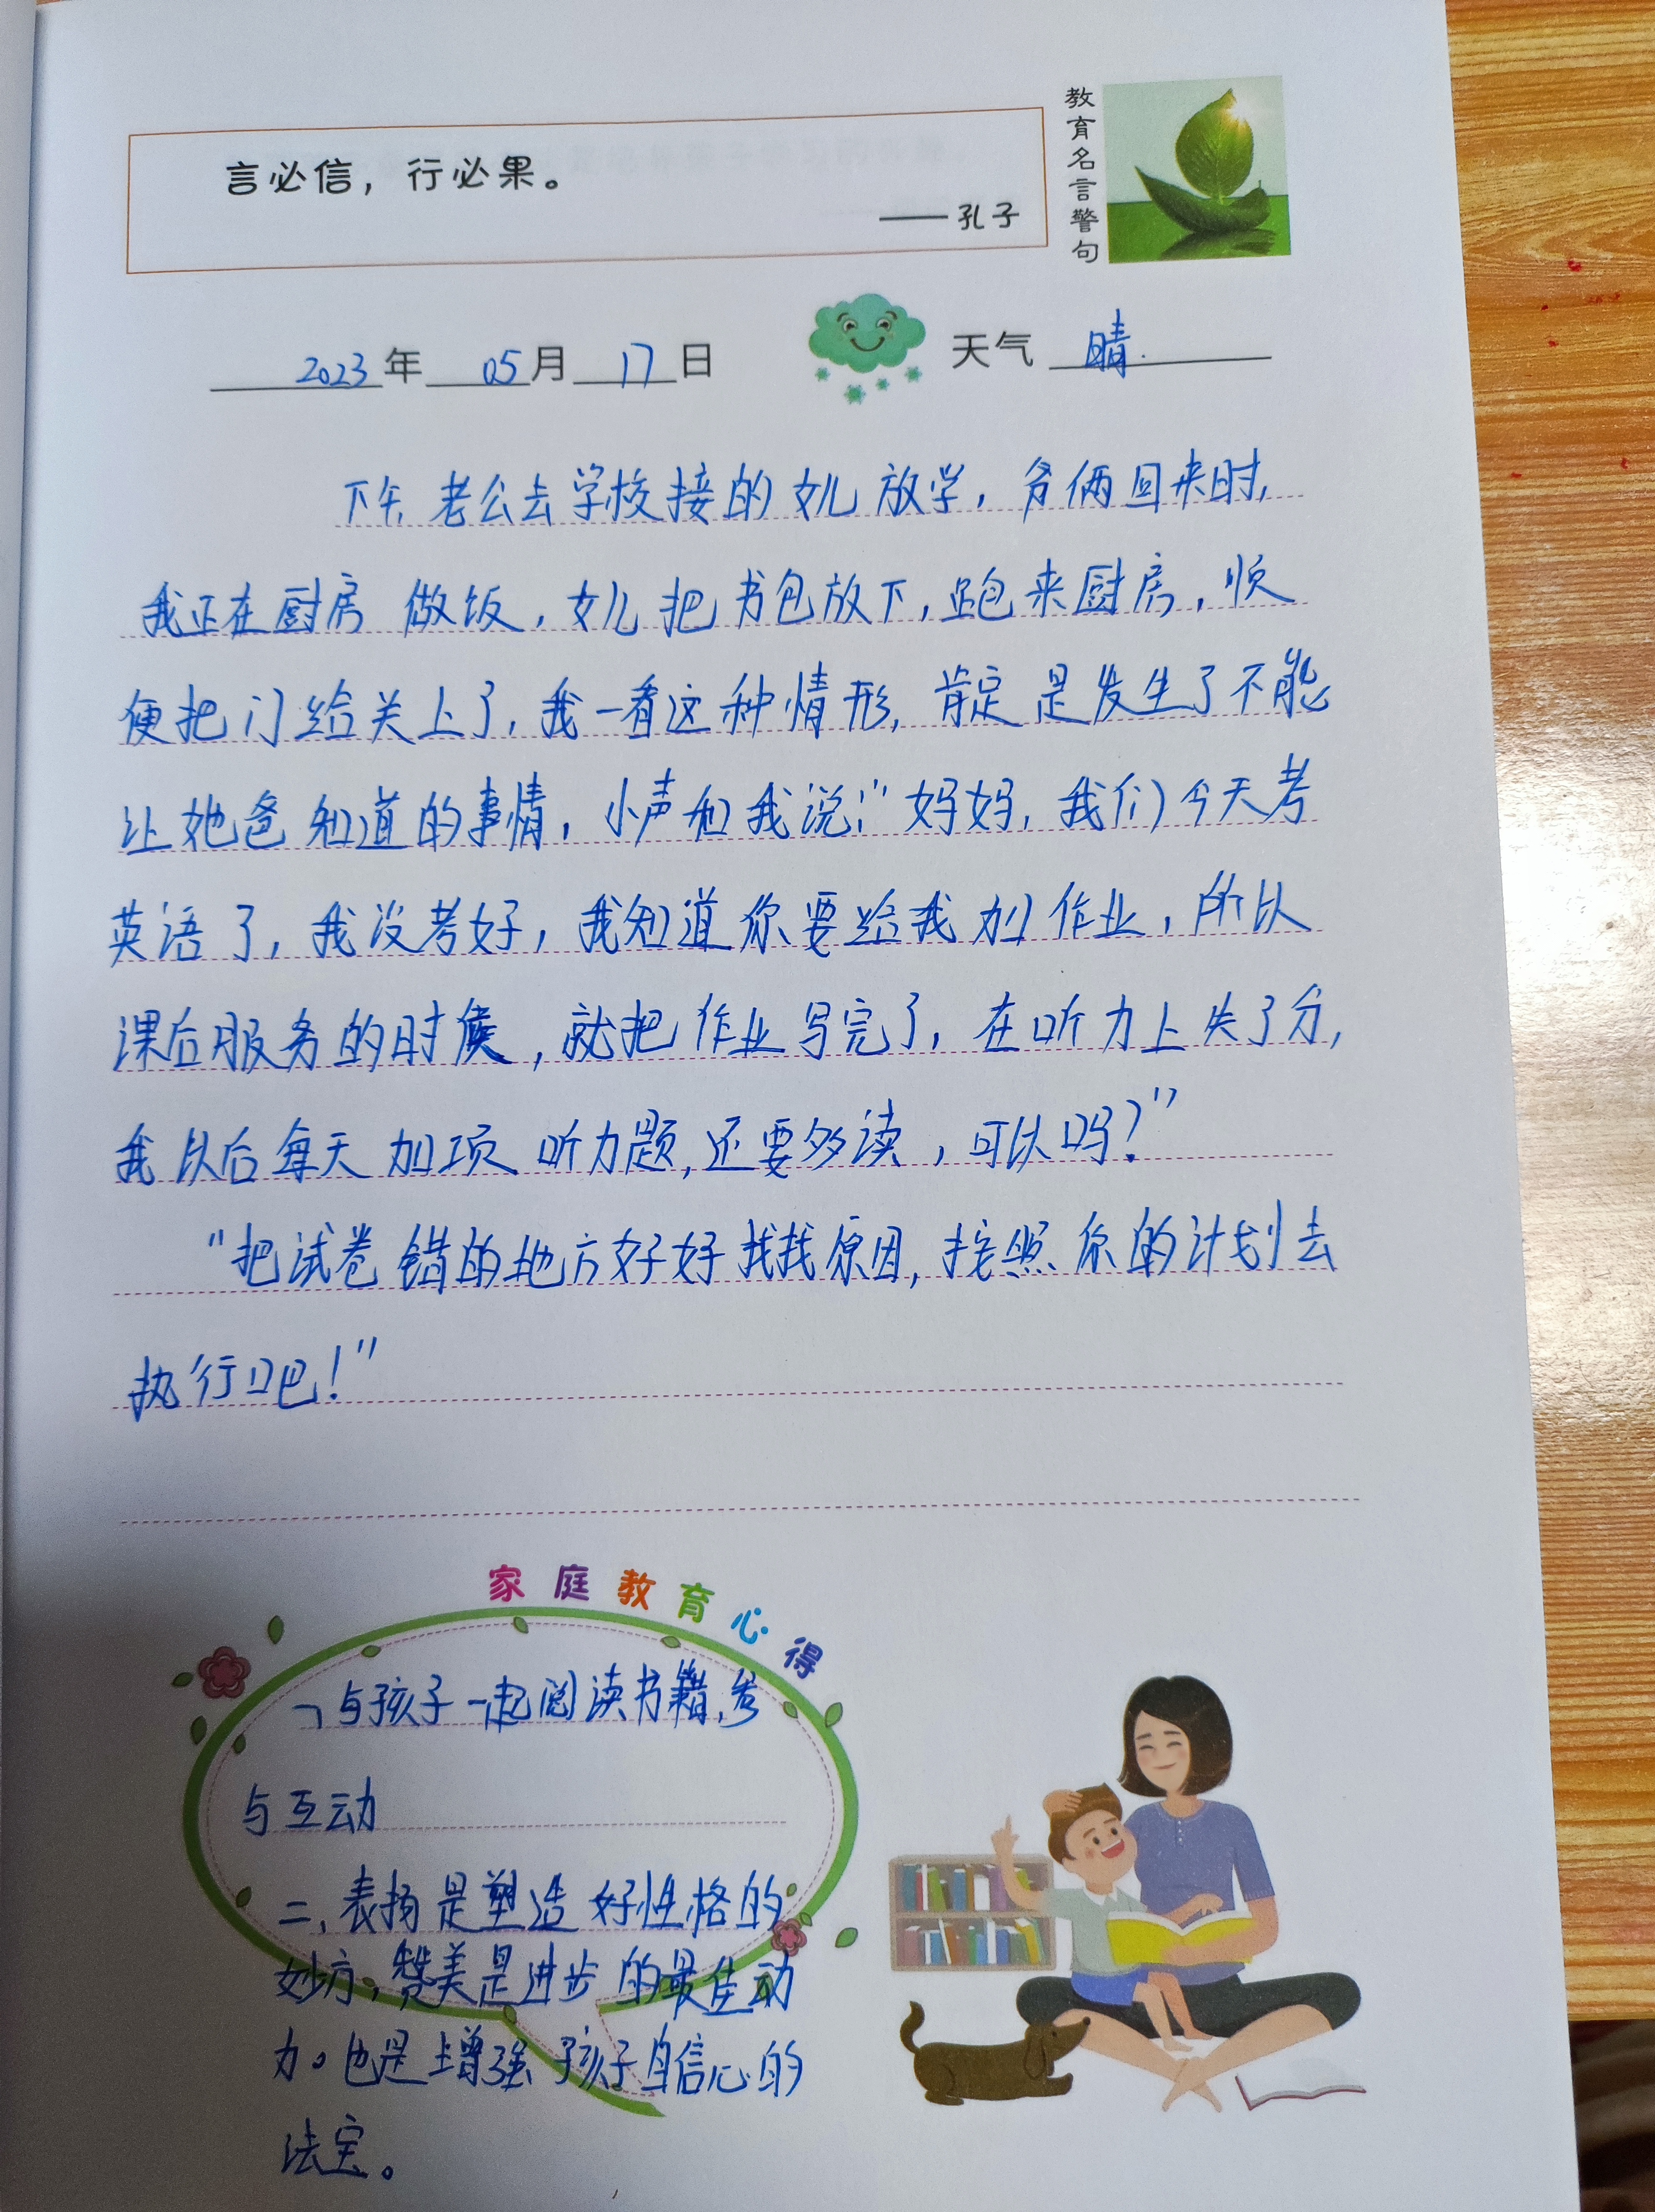 言必信，行必果。
——孔子
教育名言警句
2023年05月17日
天气 晴.
下午老公去学校接的女儿放学，爷俩回来时，
我正在厨房做饭，女儿把书包放下，跑来厨房，顺
便把门给关上了，我一看这种情形，肯定是发生了不能
让她爸知道的事情，小声和我说：“妈妈，我们今天考
英语了，我没考好，我知道你要给我加作业，所以
课后服务的时候，就把作业写完了，在听力上失了分，
我以后每天加项听力题，还要多读，可以吗？”
“把试卷错的地方好好找找原因，按照你的计划去
执行吧！”
家庭教育心得
一、与孩子一起阅读书籍，参
与互动
二、表扬是塑造好性格的
妙方，赞美是进步的最佳动
力。也是增强孩子自信心的
法宝。